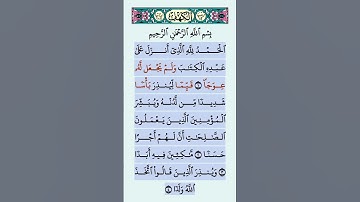 الكهف
بِسْمِ ٱللَّهِ ٱلرَّحْمَٰنِ ٱلرَّحِيمِ
ٱلْحَمْدُ لِلَّهِ ٱلَّذِىٓ أَنزَلَ عَلَىٰ
عَبْدِهِ ٱلْكِتَٰبَ وَلَمْ يَجْعَل لَّهُۥ
عِوَجَاۜ ١ قَيِّمًا لِّيُنذِرَ بَأْسًا
شَدِيدًا مِّن لَّدُنْهُ وَيُبَشِّرَ
ٱلْمُؤْمِنِينَ ٱلَّذِينَ يَعْمَلُونَ
ٱلصَّٰلِحَٰتِ أَنَّ لَهُمْ أَجْرًا
حَسَنًا ٢ مَّٰكِثِينَ فِيهِ أَبَدًا
٣ وَيُنذِرَ ٱلَّذِينَ قَالُوا۟ ٱتَّخَذَ
ٱللَّهُ وَلَدًا ٤